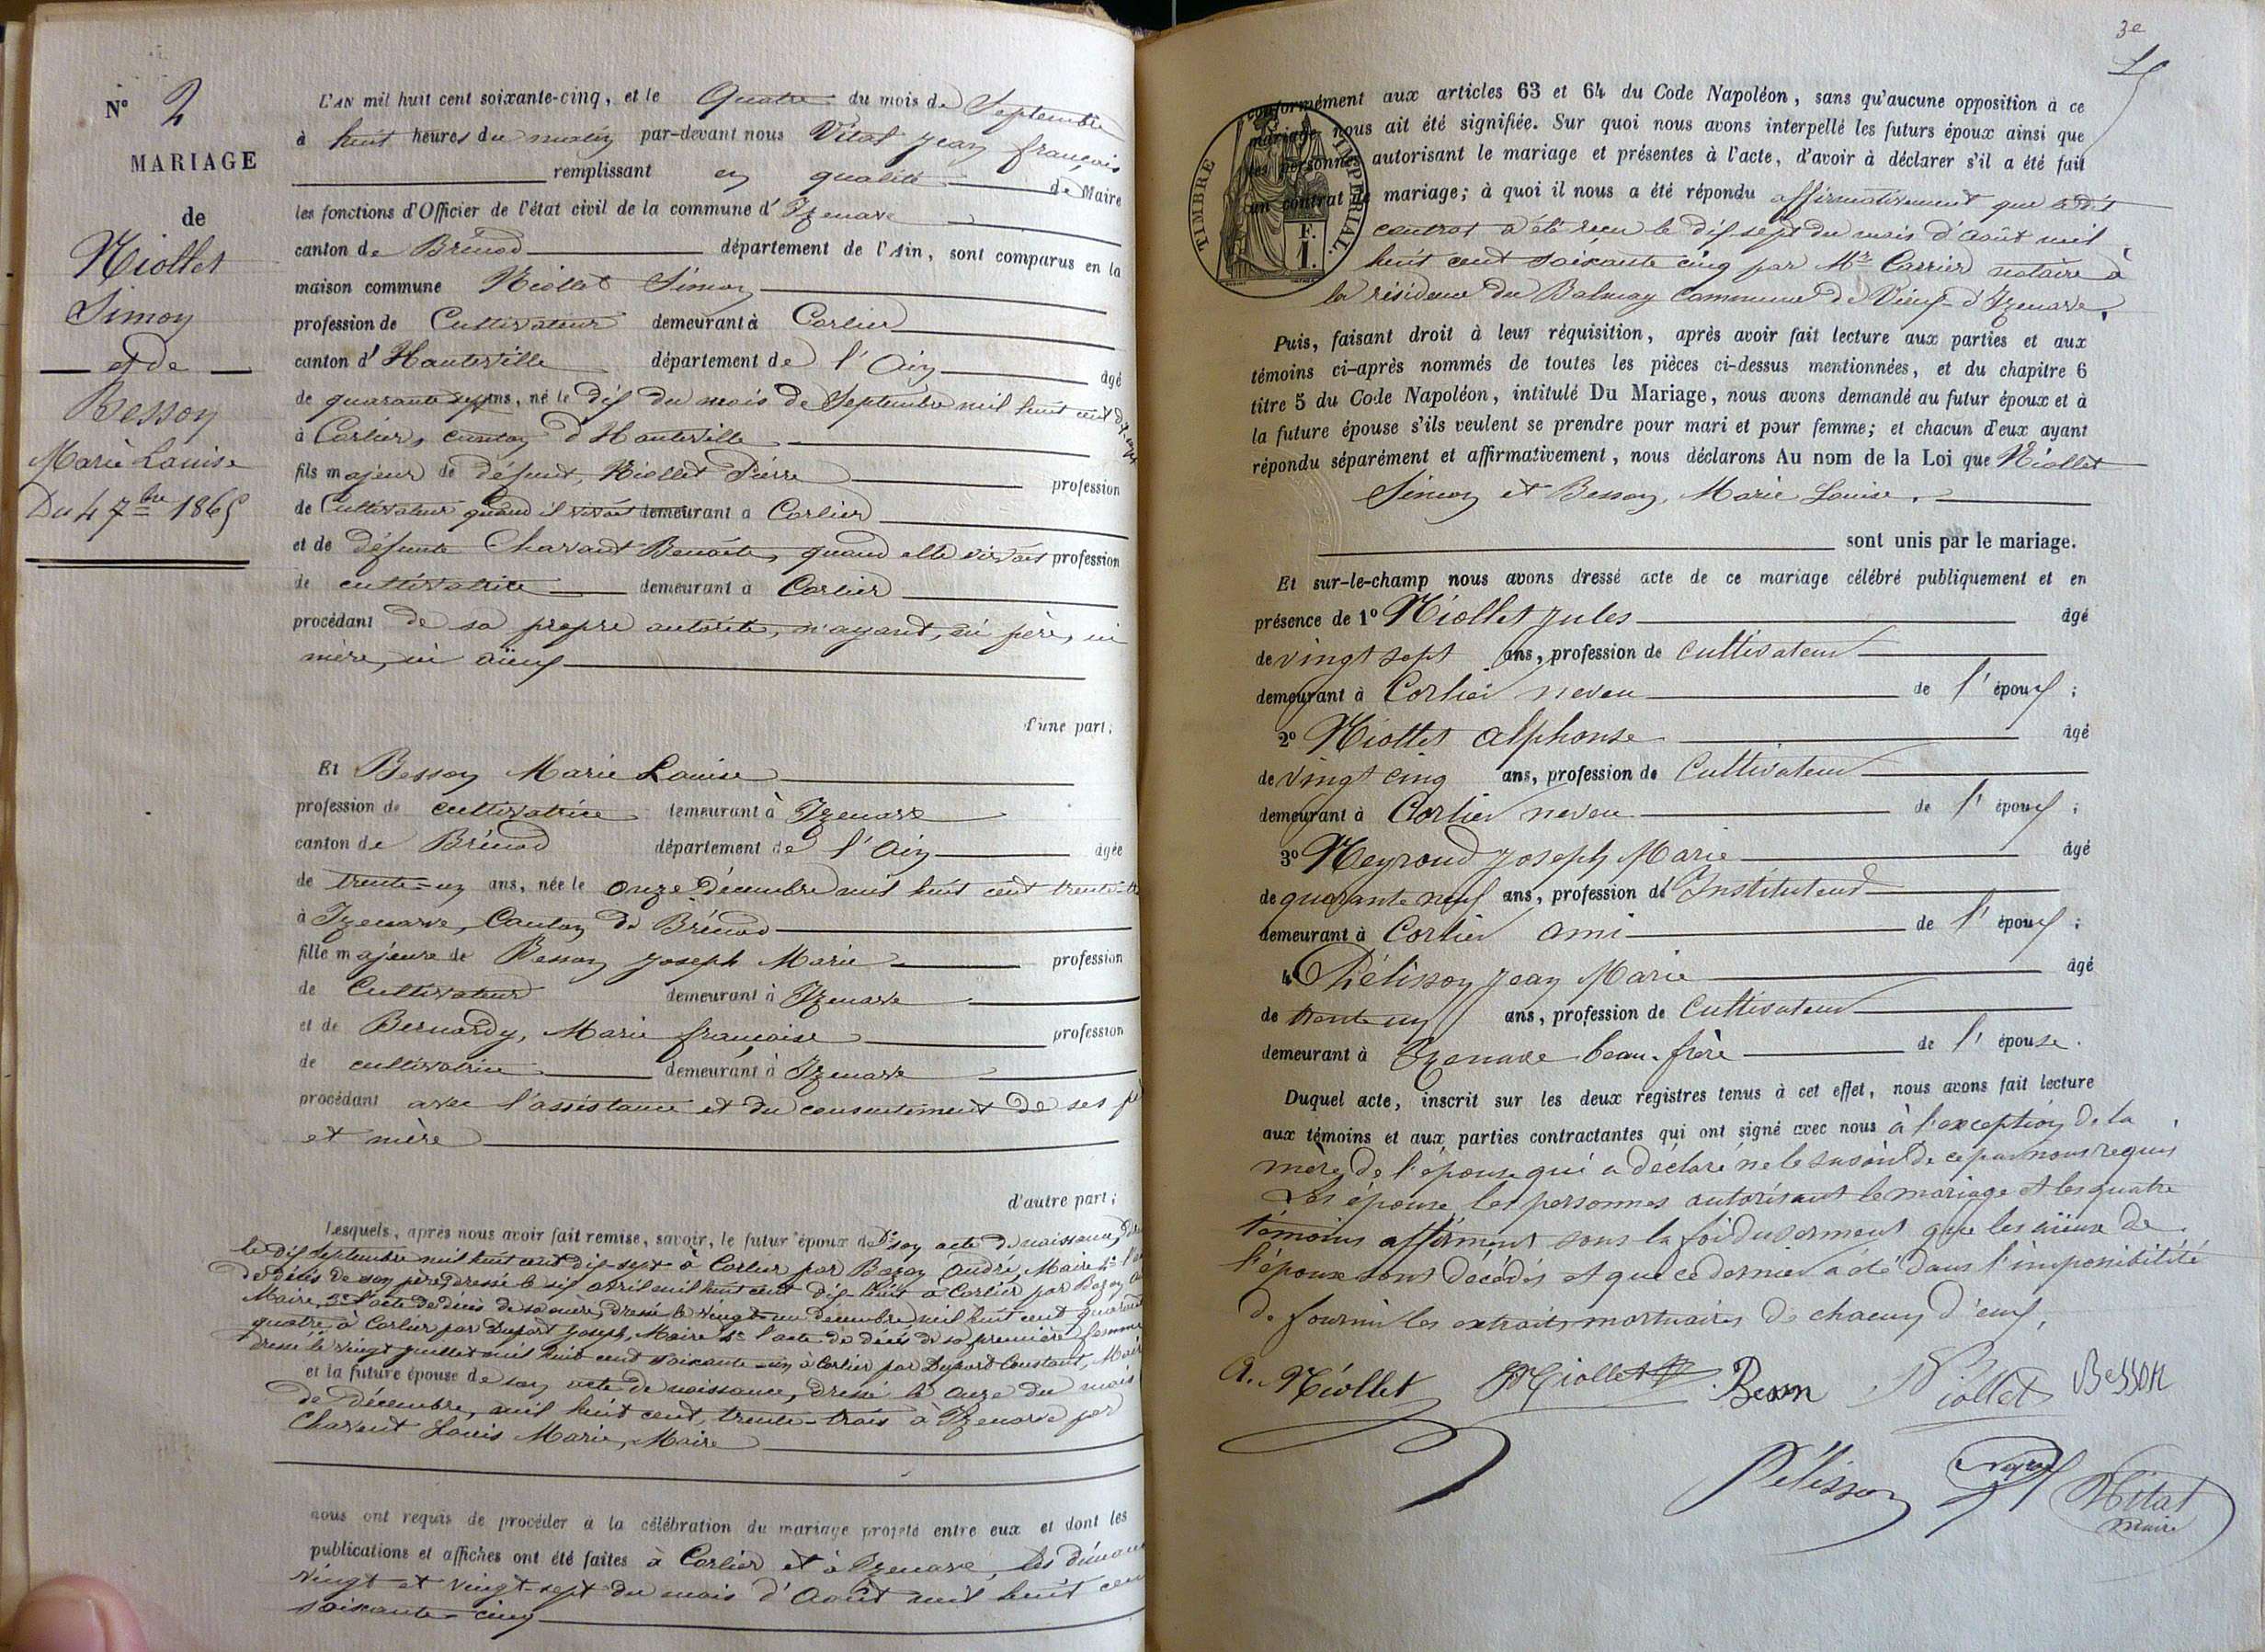 N° 2
MARIAGE
de
Niollet
Simon
et de
Besson
Marie Louise
Du 4 7bre 1865
L'AN mil huit cent soixante-cinq, et le Quatre du mois de Septembre
à huit heures du matin par-devant nous Vital Jean françois
remplissant en qualité de Maire
les fonctions d'Officier de l'état civil de la commune d' Izenave
canton de Brénod département de l'Ain, sont comparus en la
maison commune Niollet Simon
profession de Cultivateur demeurant à Corlier
canton d' Hauteville département de l'Ain âgé
de quarante sept ans, né le dix du mois de Septembre mil huit cent dix sept
à Corlier, canton d'Hauteville
fils majeur de défunt, Niollet Pierre profession
de Cultivateur quand il vivait demeurant à Corlier
et de défunte Charvet Benoîte, quand elle vivait profession
de cultivatrice demeurant à Corlier
procédant de sa propre autorité, n'ayant, ni père, ni
mère, ni aïeux
d'une part;
Et Besson Marie Louise
profession de cultivatrice demeurant à Izenave
canton de Brénod département de l'Ain âgée
de trente-un ans, née le onze Décembre mil huit cent trente-tr
à Izenave, Canton de Brénod
fille majeure de Besson Joseph Marie profession
de Cultivateur demeurant à Izenave
et de Bernardy, Marie françoise profession
de cultivatrice demeurant à Izenave
procédant avec l'assistance et du consentement de ses p
et mère
d'autre part;
Lesquels, après nous avoir fait remise, savoir, le futur époux de 1° son acte de naissance, dre
le dix septembre mil huit cent dix-sept à Corlier par Bozon André, Maire 2° l'a
de décès de son père, dressé le six avril mil huit cent dix huit à Corlier par Bozon
Maire, 3° l'acte de décès de sa mère, dressé le vingt-un décembre mil huit cent quarante
quatre à Corlier par Duport Joseph, Maire 4° l'acte de décès de sa première femme
dressé le vingt juillet mil huit cent soixante-un à Corlier par Dupord Constant, Mair
et la future épouse de son acte de naissance, dressé le onze du mois
de décembre, mil huit cent, trente-trois à Izenave par
Charvet Louis Marie, Maire
nous ont requis de procéder à la célébration du mariage projeté entre eux et dont les
publications et affiches ont été faites à Corlier et à Izenave, les diman
vingt et vingt-sept du mois d'Août mil huit cen
soixante-cinq
3e
TIMBRE IMPÉRIAL
F.
1.
conformément aux articles 63 et 64 du Code Napoléon, sans qu'aucune opposition à ce
mariage nous ait été signifiée. Sur quoi nous avons interpellé les futurs époux ainsi que
les personnes autorisant le mariage et présentes à l'acte, d'avoir à déclarer s'il a été fait
un contrat de mariage; à quoi il nous a été répondu affirmativement que ledit
contrat a été reçu le dix-sept du mois d'Août mil
huit cent soixante cinq par Mr Carrier notaire à
la résidence du Balmay Commune de Vieux-d'Izenave.
Puis, faisant droit à leur réquisition, après avoir fait lecture aux parties et aux
témoins ci-après nommés de toutes les pièces ci-dessus mentionnées, et du chapitre 6
titre 5 du Code Napoléon, intitulé Du Mariage, nous avons demandé au futur époux et à
la future épouse s'ils veulent se prendre pour mari et pour femme; et chacun d'eux ayant
répondu séparément et affirmativement, nous déclarons Au nom de la Loi que Niollet
Simon et Besson, Marie Louise.
sont unis par le mariage.
Et sur-le-champ nous avons dressé acte de ce mariage célébré publiquement et en
présence de 1° Niollet Jules âgé
de vingt sept ans, profession de cultivateur
demeurant à Corlier neveu de l'époux;
2° Niollet Alphonse âgé
de vingt cinq ans, profession de Cultivateur
demeurant à Corlier neveu de l'époux;
3° Neyroud Joseph Marie âgé
de quarante neuf ans, profession d' Instituteur
demeurant à Corlier ami de l'époux;
4° Pélisson Jean Marie âgé
de trente un ans, profession de Cultivateur
demeurant à Izenave beau-frère de l'épouse.
Duquel acte, inscrit sur les deux registres tenus à cet effet, nous avons fait lecture
aux témoins et aux parties contractantes qui ont signé avec nous à l'exception de la
mère de l'épouse qui a déclaré ne le savoir de ce par nous requis
Les époux, les personnes autorisant le mariage et les quatre
témoins affirment sous la foi du serment que les aïeux de
l'époux sont décédés et que ce dernier a été dans l'impossibilité
de fournir les extraits mortuaires de chacun d'eux.
A. Niollet Niollet Besson Niollet Besson
Pélisson Vital
Maire